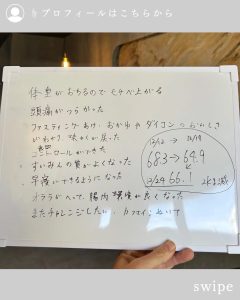 プロフィールはこちらから
体重がおちるのでモチベ上がる
頭痛がつらかった
ファスティングあけ、おかゆやダイコンのおいしさ
がわかり、味かくが戻った
食欲
コントロールができた
すいみんの質がよくなった
早寝いできるようになった
オナラがへって、腸内環境が良くなった
またチャレンジしたい。
12/12 → 12/19
68.3 → 64.9
12/24 66.1
swipe